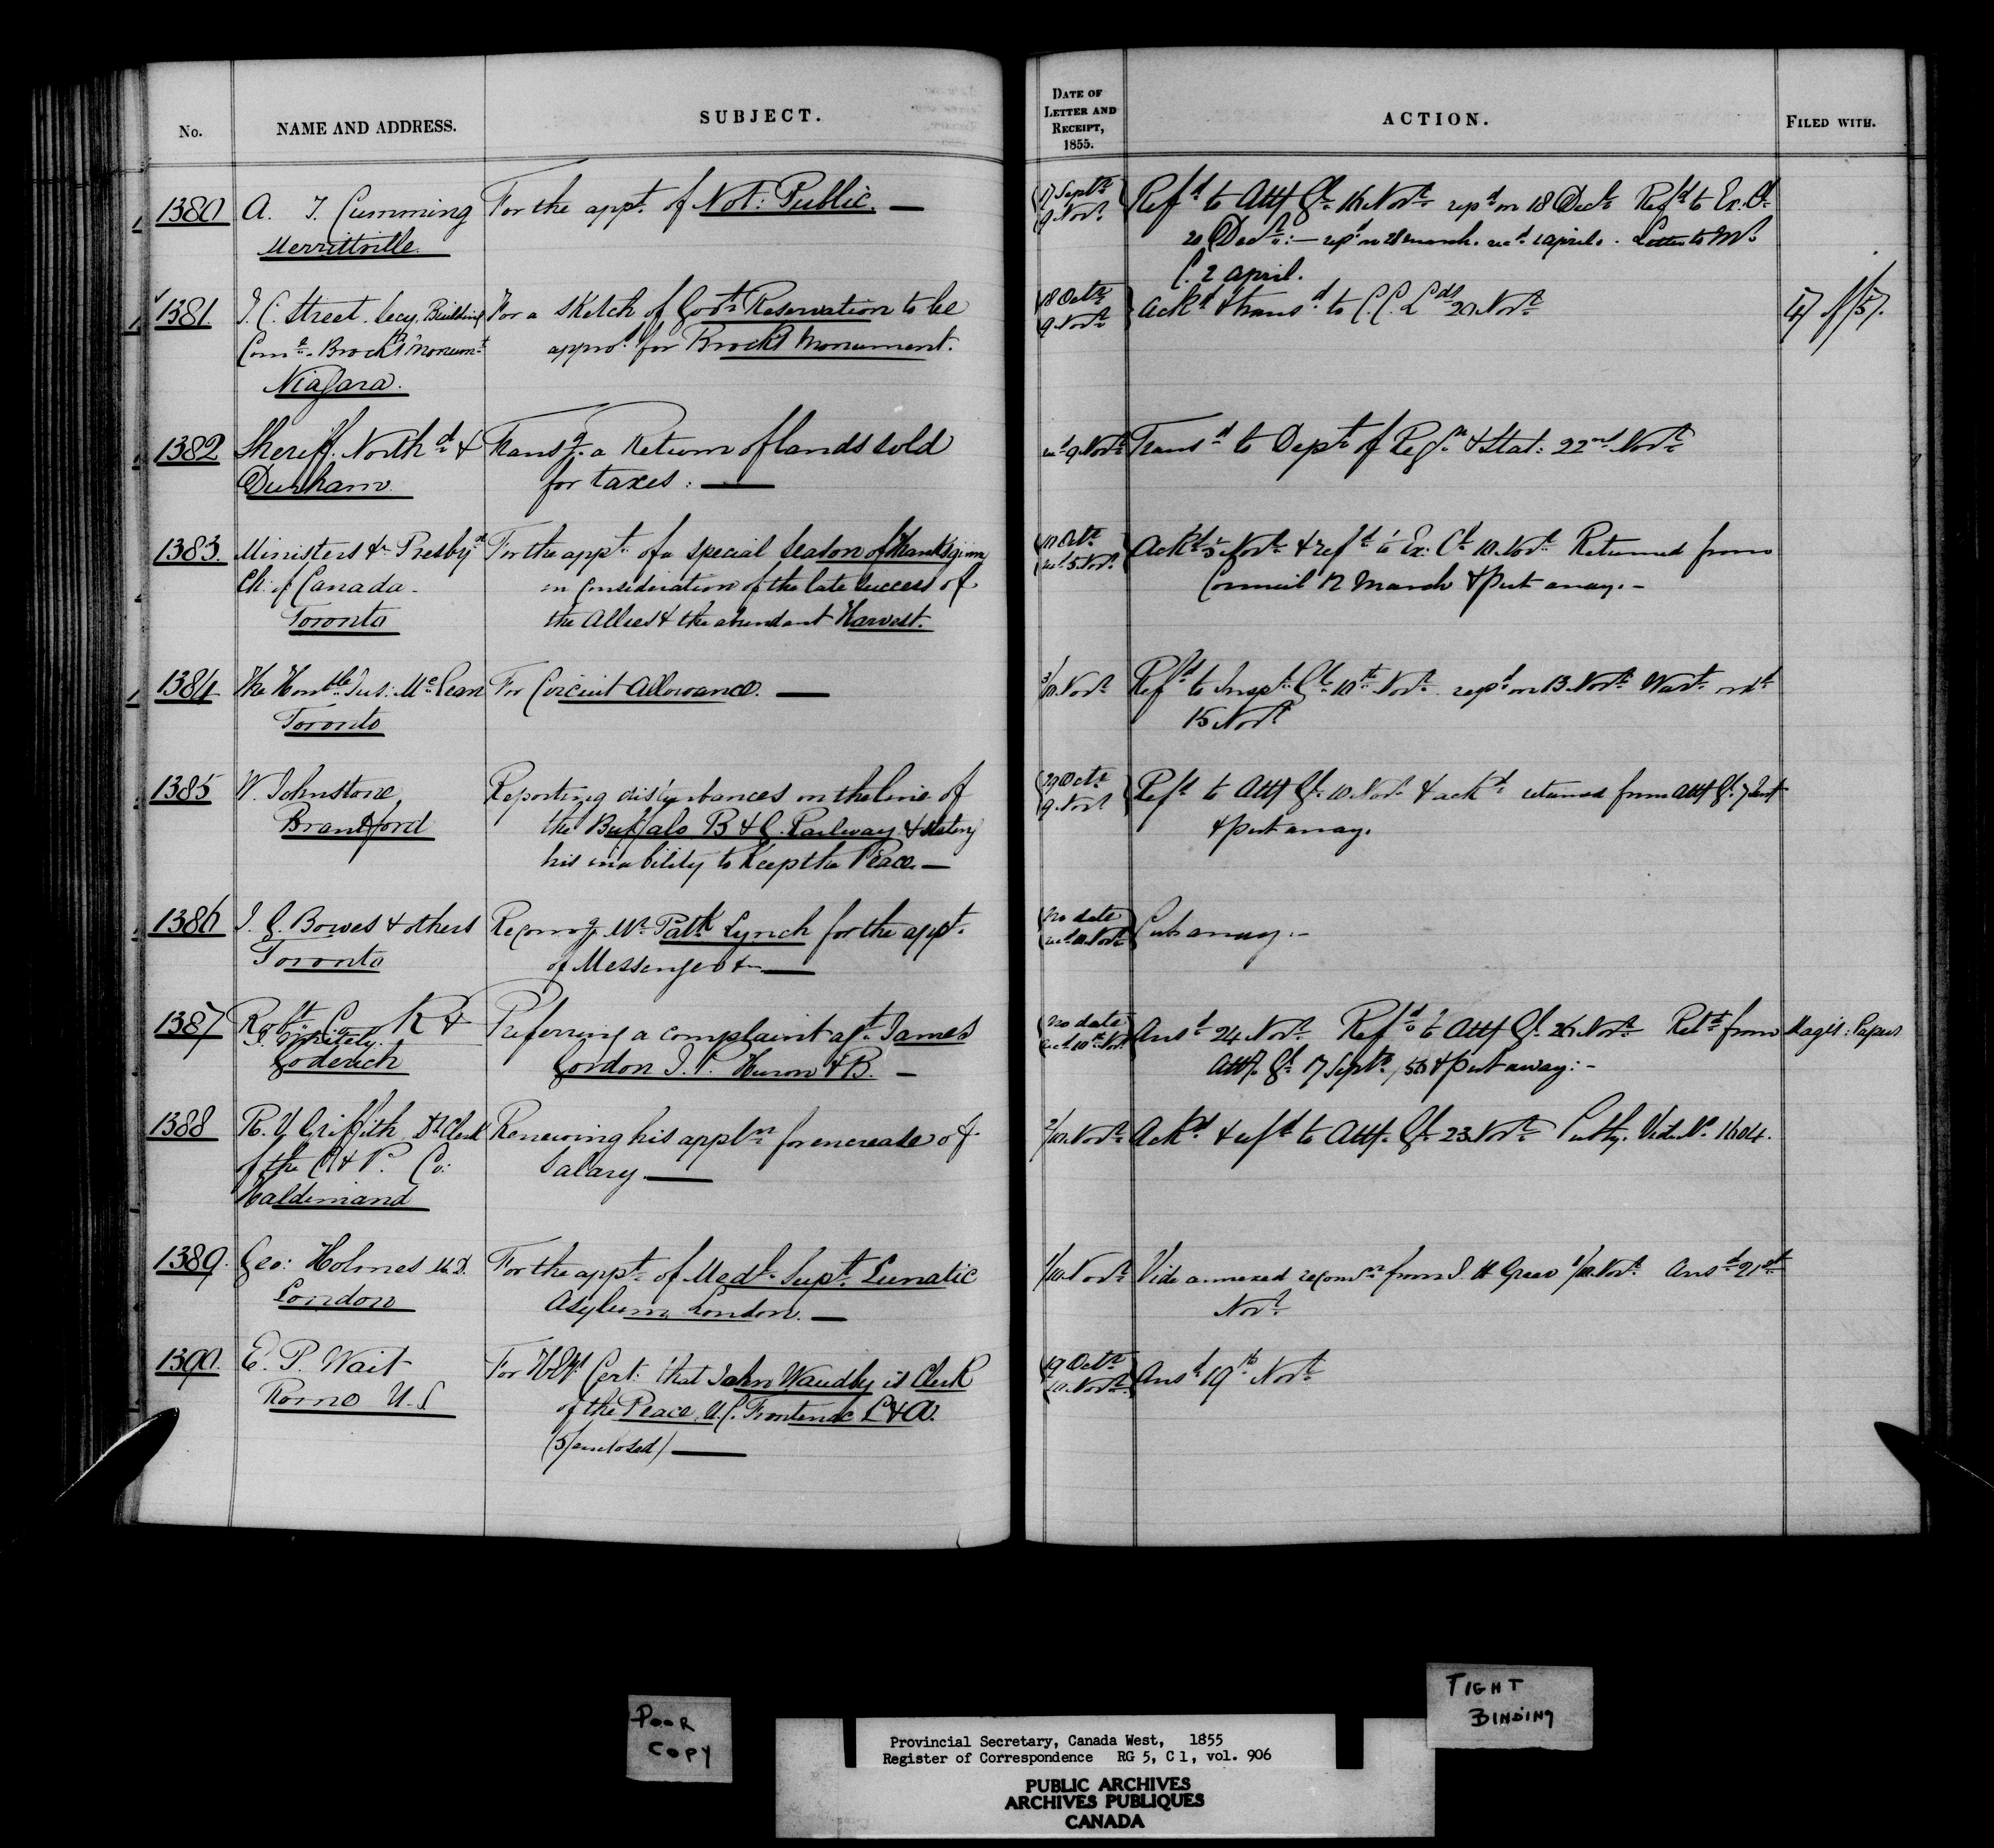 No.
NAME AND ADDRESS.
SUBJECT.
DATE OF
LETTER AND
RECEIPT,
1855.
ACTION.
FILED WITH.
1380 A. T. Cumming For the appt. of Not: Public. — 17 Septr Refd to Atty Gl. 16 Novr repd on 18 Decr Refd to Ex. Cl.
Merrittville 9 Novr 20 Decr:— repd on 28 March. recd 1 April. Letter to Mr
C. 2 April.
1381 T. C. Street. Secy. Building For a sketch of Govt Reservation to be 18 Octr Ackd & transd to C. C. Lds 20 Novr
Come. Brock's Monumt appro. for Brocks Monument. 9 Novr
Niagara.
1382 Sheriff. Northd & Transg. a Return of lands sold recd 9 Novr Transd to Dept. of Regn & Stat: 22nd Novr
Durham for taxes: —
1383. Ministers &c Presbyn For the appt. of a special Season of thanksgiving Octr Ackd 5 Novr & refd to Ex: Cl 10 Novr Returned from
Ch: of Canada. in Consideration of the late success of recd 5 Novr Council 12 March & put away. —
Toronto the Allies & the abundant Harvest.
1384 The Honble Jus: McLean For Circuit Allowance. — 3/10 Novr Refd to Inspr Gl. 10th Novr repd on 13 Novr Wart.
Toronto 15 Novr
1385 W. Johnstone, Reporting disturbances on the line of 29 Octr Refd to Atty Gl. 10 Novr & ackd returned from Atty Gl. 7
Brantford the Buffalo B & G. Railway & stating 9 Novr & put away.
his inability to Keep the Peace. —
1386 J. G. Bowes & others Recomg Mr Patk Lynch for the appt. No date Put away. —
Toronto of Messenger &c — recd 10 Novr
1387 Robt K &
Goderich
Preferring a complaint agt. James No date Ansd 24 Novr Refd to Atty Gl. 26 Novr Retd from Magis: Papers
Gordon J. P. Huron & B. — recd 10th Novr Atty Gl. 17 Septr /56 & put away: —
1388 R. Y. Griffith Dt Clerk Renewing his appln for encrease of 2/10 Novr Ackd & refd to Atty. Gl. 23 Novr Vide No 1604.
of the C & P. Co: Salary —
Haldimand
1389. Geo: Holmes M.D. For the appt. of Medl. Supt. Lunatic 1/10 Novr Vide annexed recomn from 1/10 Novr Ansd 21st
London Asylum London. — Novr
1390. E. P. Wait For Cert: that John Waudby is Clerk 19 Octr Ansd 19th Novr
Rome U.S of the Peace, U.C. Frontenac L & A. 10 Novr
(5/enclosed) —
POOR
COPY
TIGHT
BINDING
Provincial Secretary, Canada West, 1855
Register of Correspondence RG 5, C 1, vol. 906
PUBLIC ARCHIVES
ARCHIVES PUBLIQUES
CANADA